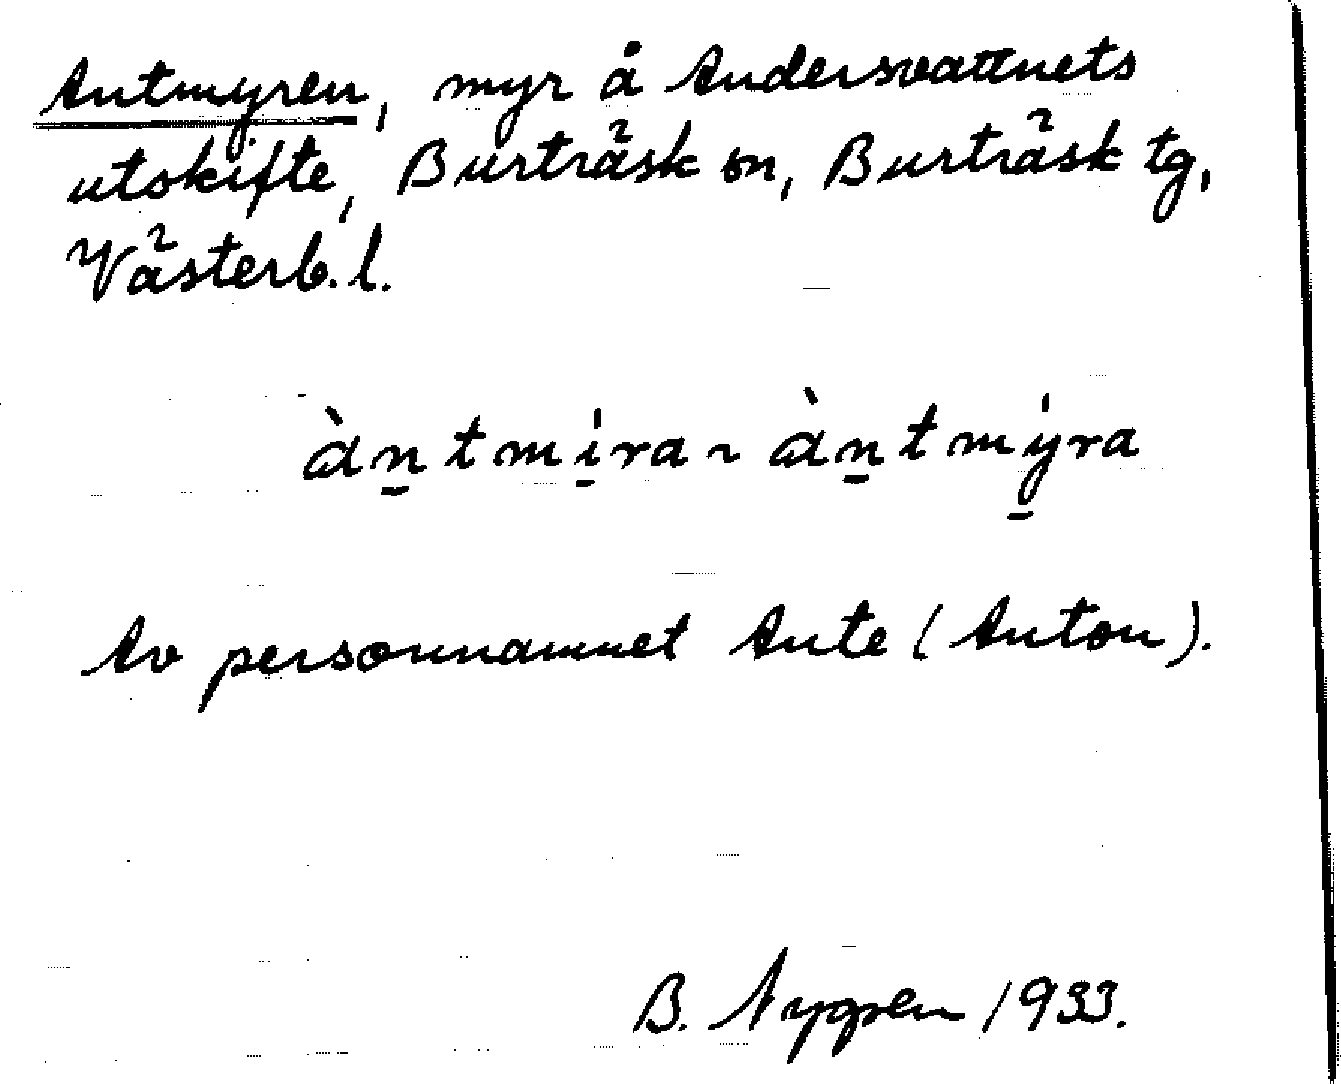 Antmyren, myr å Andersvattnets
utskifte, Burträsk sn, Burträsk tg,
Västerb. l.
àn̠tmi̠̍ra ~ àn̠tmy̠̍ra
Av personnamnet Ante (Anton).
B. Nygren 1933.